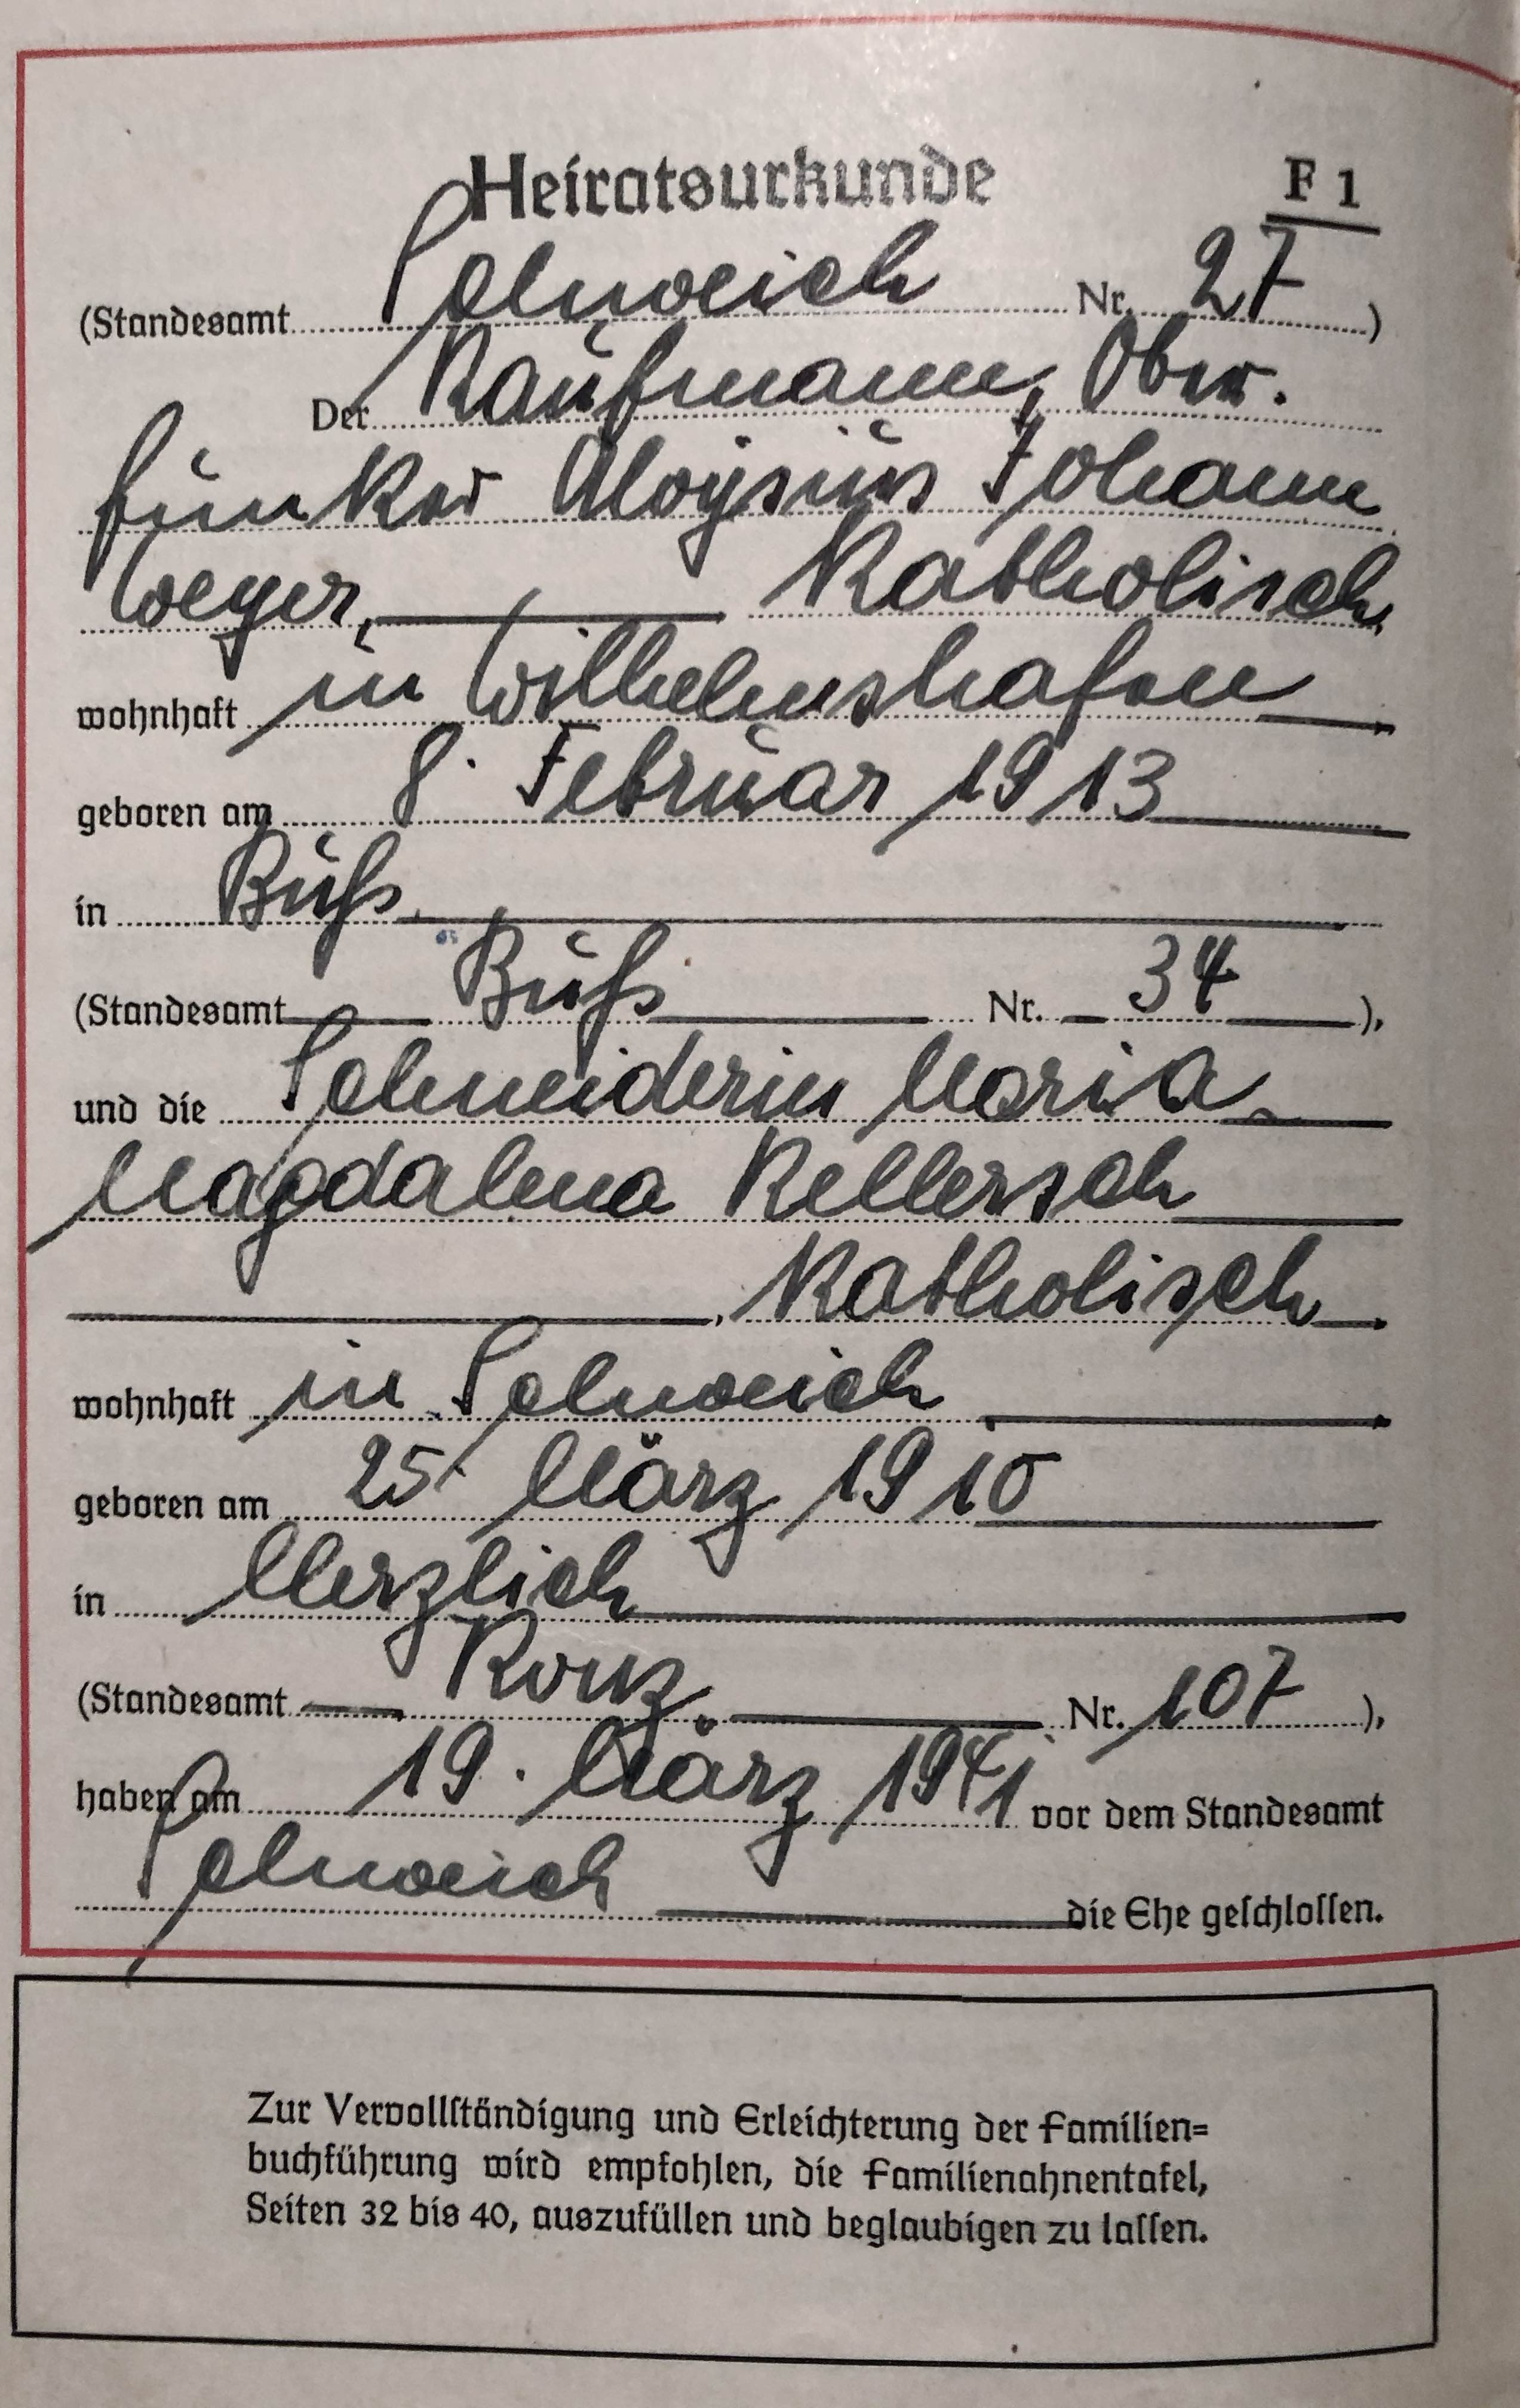 Heiratsurkunde F 1
(Standesamt Schweich Nr. 27)
Der Kaufmann, Ober.
funker Aloysius Johann
Weyer, Katholisch,
wohnhaft in Wilhelmshafen
geboren am 8. Februar 1913
in Büß.
(Standesamt Büß Nr. 34),
und die Schneiderin Maria
Magdalena Kellersch
, Katholisch
wohnhaft in Schweich
geboren am 25. März 1910
in Merzlich
(Standesamt Konz. Nr. 107),
haben am 19. März 1941 vor dem Standesamt
Schweich die Ehe geschlossen.
Zur Vervollständigung und Erleichterung der Familien=
buchführung wird empfohlen, die Familienahnentafel,
Seiten 32 bis 40, auszufüllen und beglaubigen zu lassen.